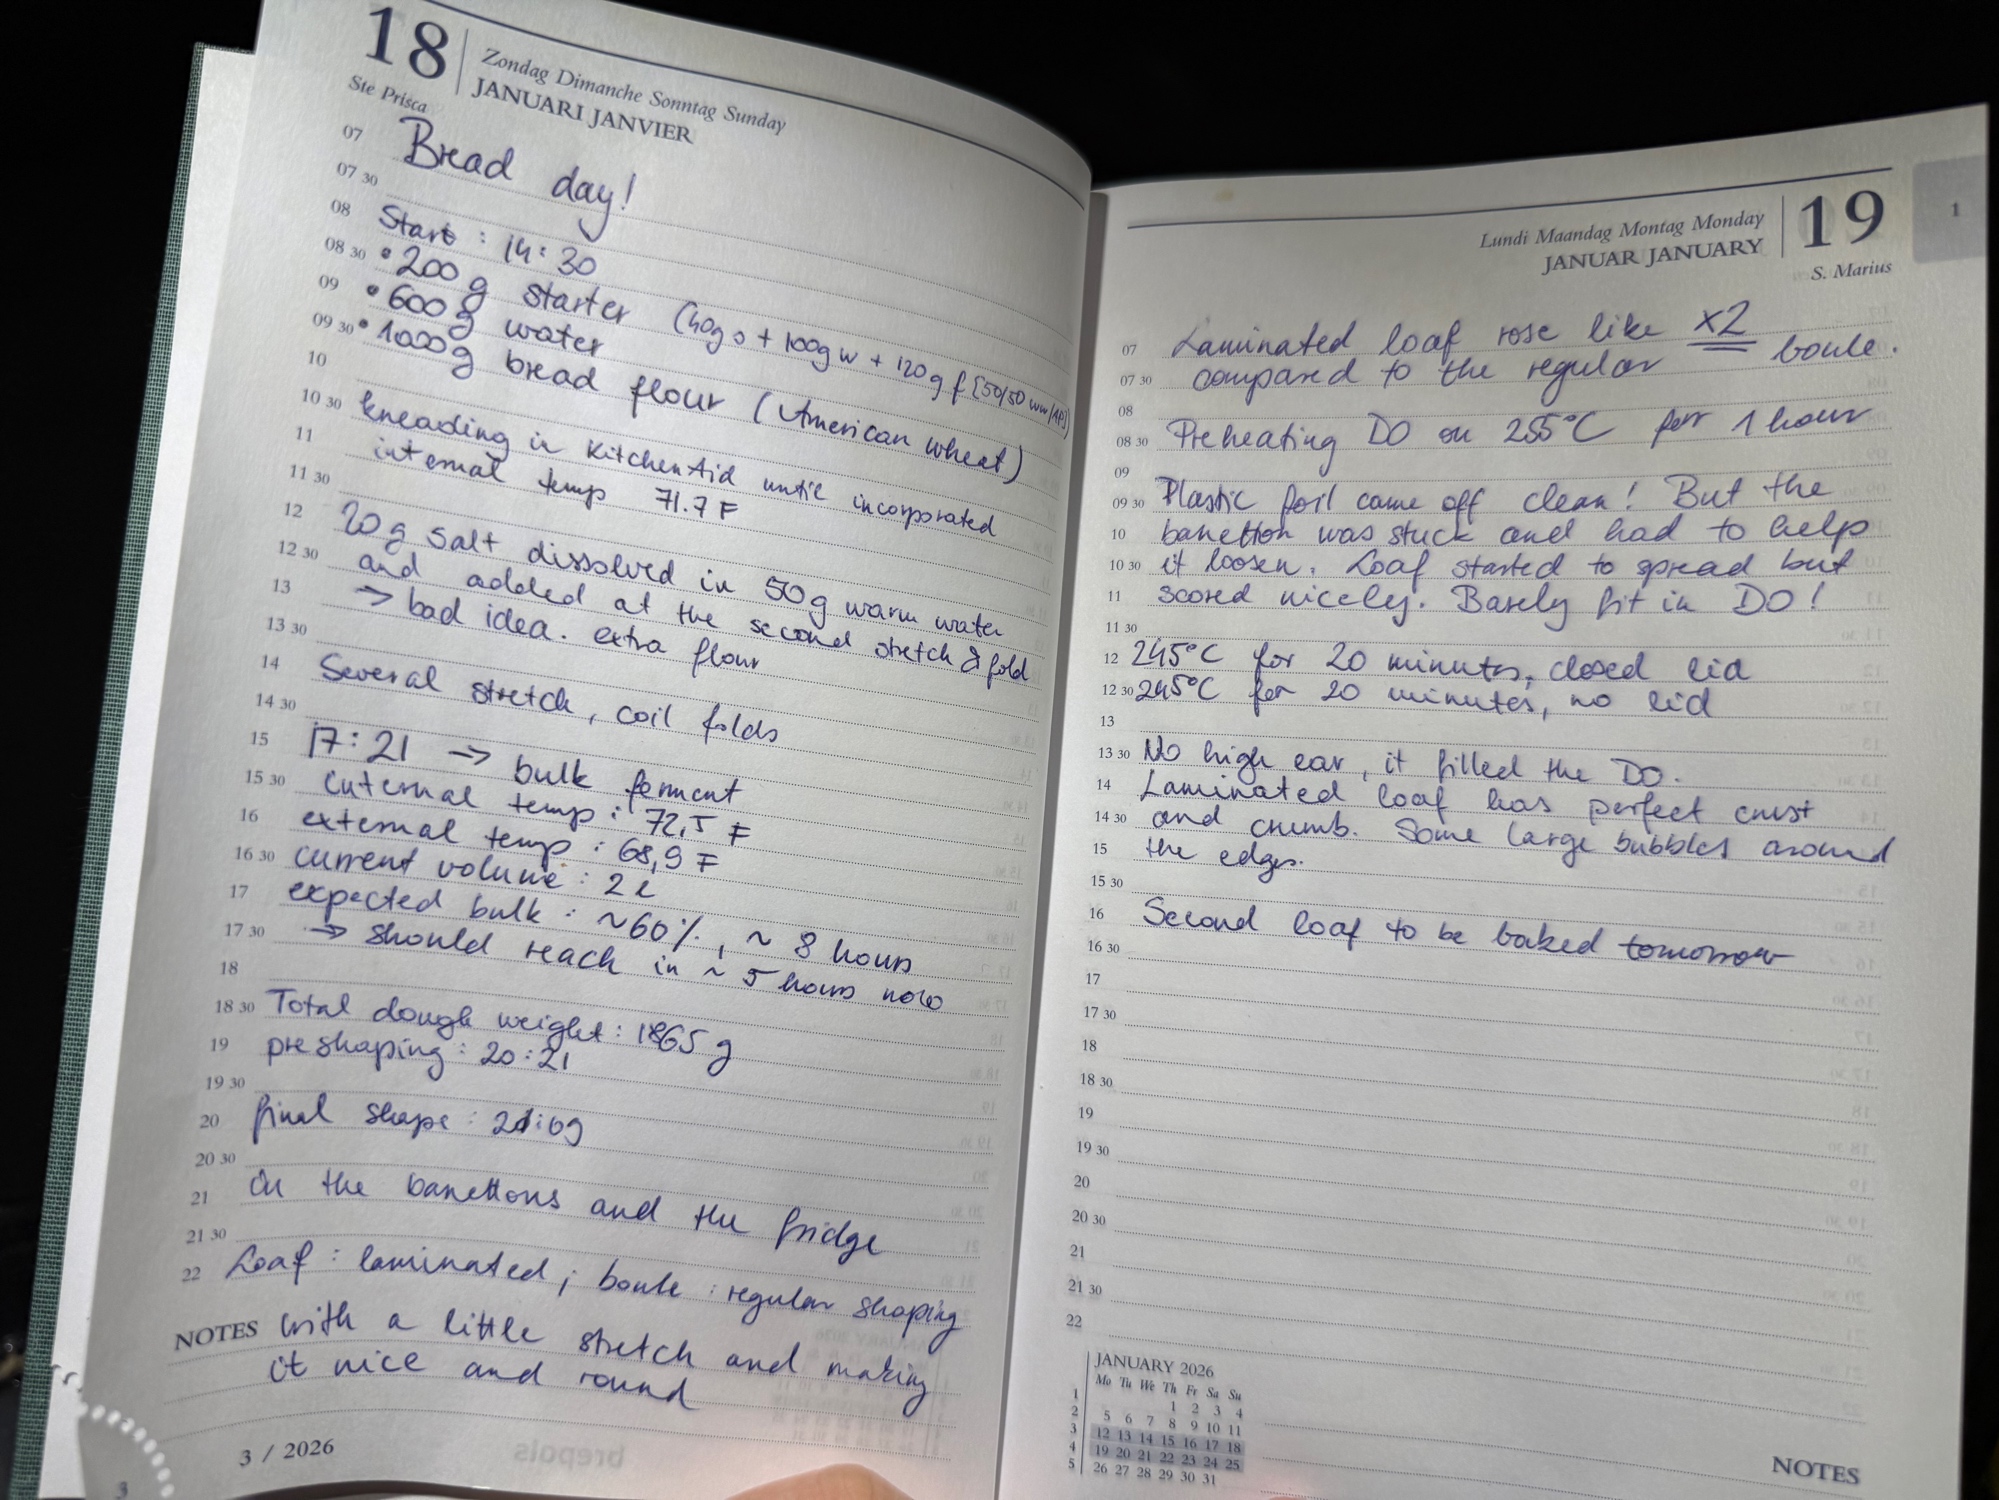 18
Zondag Dimanche Sonntag Sunday
JANUARI JANVIER
Ste Prisca
07 Bread day!
07 30
08 Start : 14:30
08 30 • 200g starter (40g s + 100g w + 120g f [50/50 ww/AP])
09 • 600g water
09 30 • 1000g bread flour (American wheat)
10
10 30 kneading in KitchenAid until incorporated
11 internal temp 71.7 F
11 30
12 20g salt dissolved in 50g warm water
12 30 and added at the second stretch & fold
13 → bad idea. extra flour
13 30
14 Several stretch, coil folds
14 30
15 17:21 → bulk ferment
15 30 internal temp : 72,5 F
16 external temp : 68,9 F
16 30 current volume : 2 l
17 expected bulk : ~60%, ~ 8 hours
17 30 → should reach in ~ 5 hours now
18
18 30 Total dough weight : 1865 g
19 preshaping : 20:21
19 30
20 final shape : 21:09
20 30
21 In the banettons and the fridge
21 30
22 Loaf : laminated ; boule : regular shaping
NOTES with a little stretch and making
it nice and round
3 / 2026
brepols
3
1
Lundi Maandag Montag Monday
JANUAR JANUARY
19
S. Marius
07 Laminated loaf rose like x2
07 30 compared to the regular boule.
08
08 30 Preheating DO on 255°C for 1 hour
09
09 30 Plastic foil came off clean! But the
10 banetton was stuck and had to help
10 30 it loosen. Loaf started to spread but
11 scored nicely. Barely fit in DO!
11 30
12 245°C for 20 minutes, closed lid
12 30 245°C for 20 minutes, no lid
13
13 30 No high ear, it filled the DO.
14 Laminated loaf has perfect crust
14 30 and crumb. Some large bubbles around
15 the edges.
15 30
16 Second loaf to be baked tomorrow
16 30
17
17 30
18
18 30
19
19 30
20
20 30
21
21 30
22
JANUARY 2026
Mo Tu We Th Fr Sa Su
1 1 2 3 4
2 5 6 7 8 9 10 11
3 12 13 14 15 16 17 18
4 19 20 21 22 23 24 25
5 26 27 28 29 30 31
NOTES